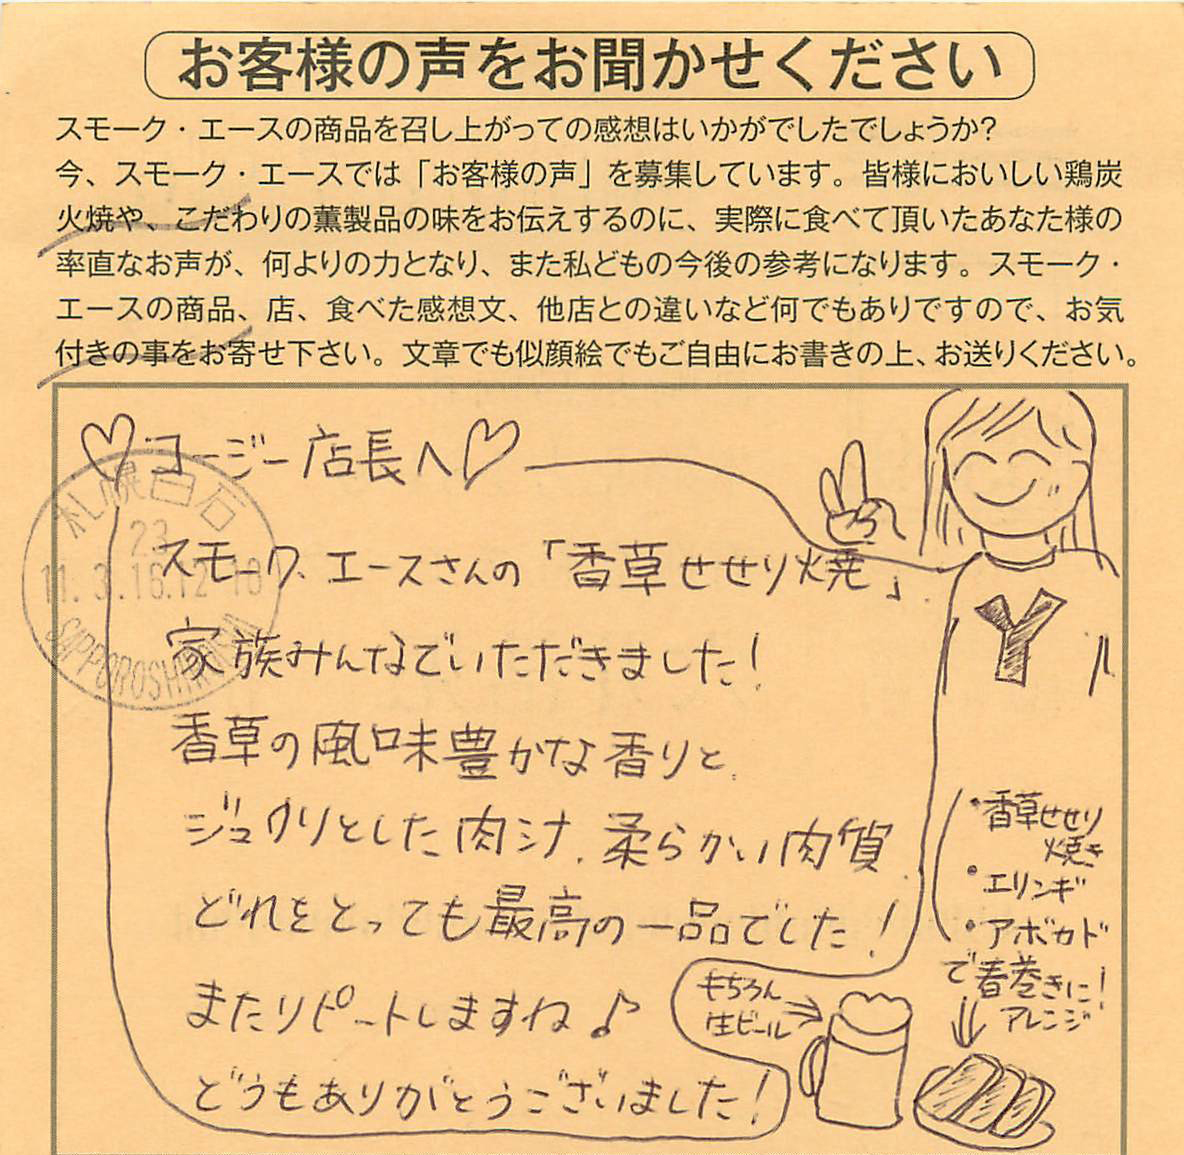 お客様の声をお聞かせください
スモーク・エースの商品を召し上がっての感想はいかがでしたでしょうか？
今、スモーク・エースでは「お客様の声」を募集しています。皆様においしい鶏炭
火焼や、こだわりの薫製品の味をお伝えするのに、実際に食べて頂いたあなた様の
率直なお声が、何よりの力となり、また私どもの今後の参考になります。スモーク・
エースの商品、店、食べた感想文、他店との違いなど何でもありですので、お気
付きの事をお寄せ下さい。文章でも似顔絵でもご自由にお書きの上、お送りください。
♡コージー店長へ♡
スモーク、エースさんの「香草せせり焼」
家族みんなでいただきました！
香草の風味豊かな香りと
ジュワリとした肉汁、柔らかい肉質
どれをとっても最高の一品でした！
またリピートしますね♪
どうもありがとうございました！
Y
・香草せせり
焼き
・エリンギ
・アボカド
で春巻きに！
アレンジ
もちろん
生ビール
札幌白石
23
11.3.16.12-18
SAPPOROSHIROISHI